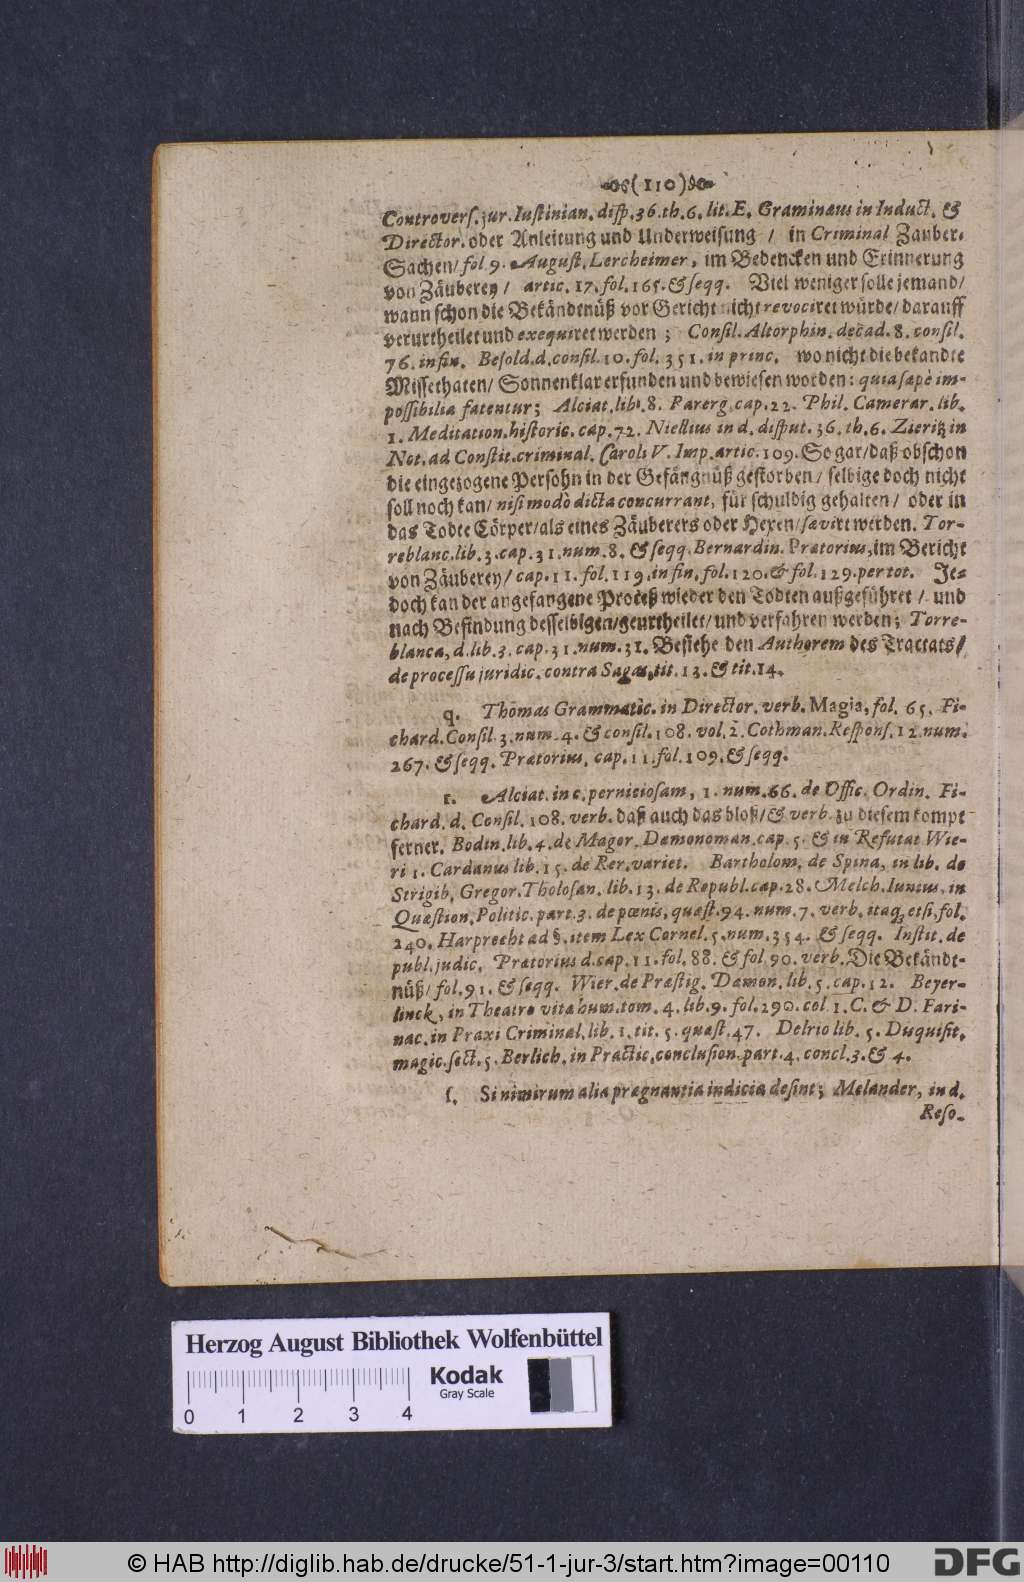 (110)
Controvers. jur. Iustinian. disp. 36. th. 6. lit. E. Graminæus in Induct. &
Director. oder Anleitung und Underweisung / in Criminal Zauber-
Sachen / fol 9. August. Lercheimer, im Bedencken und Erinnerung
von Zäuberey / artic. 17. fol. 165. & seqq. Viel weniger solle jemand /
wann schon die Bekändtnüß vor Gericht nicht revociret würde / darauff
verurtheilet und exequiret werden ; Consil. Altorphin. decad. 8. consil.
76. in fin. Besold. d. consil. 10. fol. 351. in princ. wo nicht die bekandte
Missethaten / Sonnenklar erfunden und bewiesen worden : quia sæpè im-
possibilia fatentur ; Alciat. lib. 8. Parerg. cap. 22. Phil. Camerar. lib.
1. Meditation. historic. cap. 72. Niellius in d. disput. 36. th. 6. Zieritz in
Not. ad Constit. criminal. Caroli V. Imp. artic. 109. So gar / daß obschon
die eingezogene Persohn in der Gefängnüß gestorben / selbige doch nicht
soll noch kan / nisi modò dicta concurrant, für schuldig gehalten / oder in
das Todte Cörper / als eines Zäuberers oder Hexen / sævirt werden. Tor-
reblanc. lib. 3. cap. 31. num. 8. & seqq. Bernardin. Prætorius, im Bericht
von Zäuberey / cap. 11. fol. 119. in fin. fol. 120. & fol. 129. per tot. Je-
doch kan der angefangene Proceß wieder den Todten außgeführet / und
nach Befindung desselbigen / geurtheilet / und verfahren werden ; Torre-
blanca, d. lib. 3. cap. 31. num. 31. Besiehe den Authorem des Tractats /
de processu juridic. contra Sagas, tit. 13. & tit. 14.
q. Thomas Grammatic. in Director. verb. Magia, fol. 65. Fi-
chard. Consil. 3. num. 4. & consil. 108. vol. 2. Cothman. Respons. 12. num.
267. & seqq. Prætorius, cap. 11. fol. 109. & seqq.
r. Alciat. in c. perniciosam, 1. num. 66. de Offic. Ordin. Fi-
chard. d. Consil. 108. verb. daß auch das bloß / & verb. zu diesem kompt
ferner. Bodin. lib. 4. de Magor. Dæmonoman. cap. 5. & in Refutat Wie-
ri 1. Cardanus lib. 15. de Rer. variet. Bartholom. de Spina, in lib. de
Strigib. Gregor. Tholosan. lib. 13. de Republ. cap. 28. Melch. Iunius, in
Quæstion. Politic. part. 3. de pœnis, quæst. 94. num. 7. verb. itaq; etsi, fol.
240. Harprecht ad §. item Lex Cornel. 5. num. 354. & seqq. Instit. de
publ. judic. Prætorius d. cap. 11. fol. 88. & fol 90. verb. Die Bekändt-
nüß / fol. 91. & seqq. Wier. de Præstig. Dæmon. lib. 5. cap. 12. Beyer-
linck, in Theatro vitæ hum. tom. 4. lib. 9. fol. 290. col 1. C. & D. Fari-
nac. in Praxi Criminal. lib. 1. tit. 5. quæst. 47. Delrio lib. 5. Disquisit.
magic. sect. 5. Berlich. in Practic. conclusion. part. 4. concl. 3. & 4.
s. Si nimirum alia prægnantia indicia desint ; Melander, in d.
Reso-
Herzog August Bibliothek Wolfenbüttel
Kodak
Gray Scale
0 1 2 3 4
© HAB http://diglib.hab.de/drucke/51-1-jur-3/start.htm?image=00110
DFG